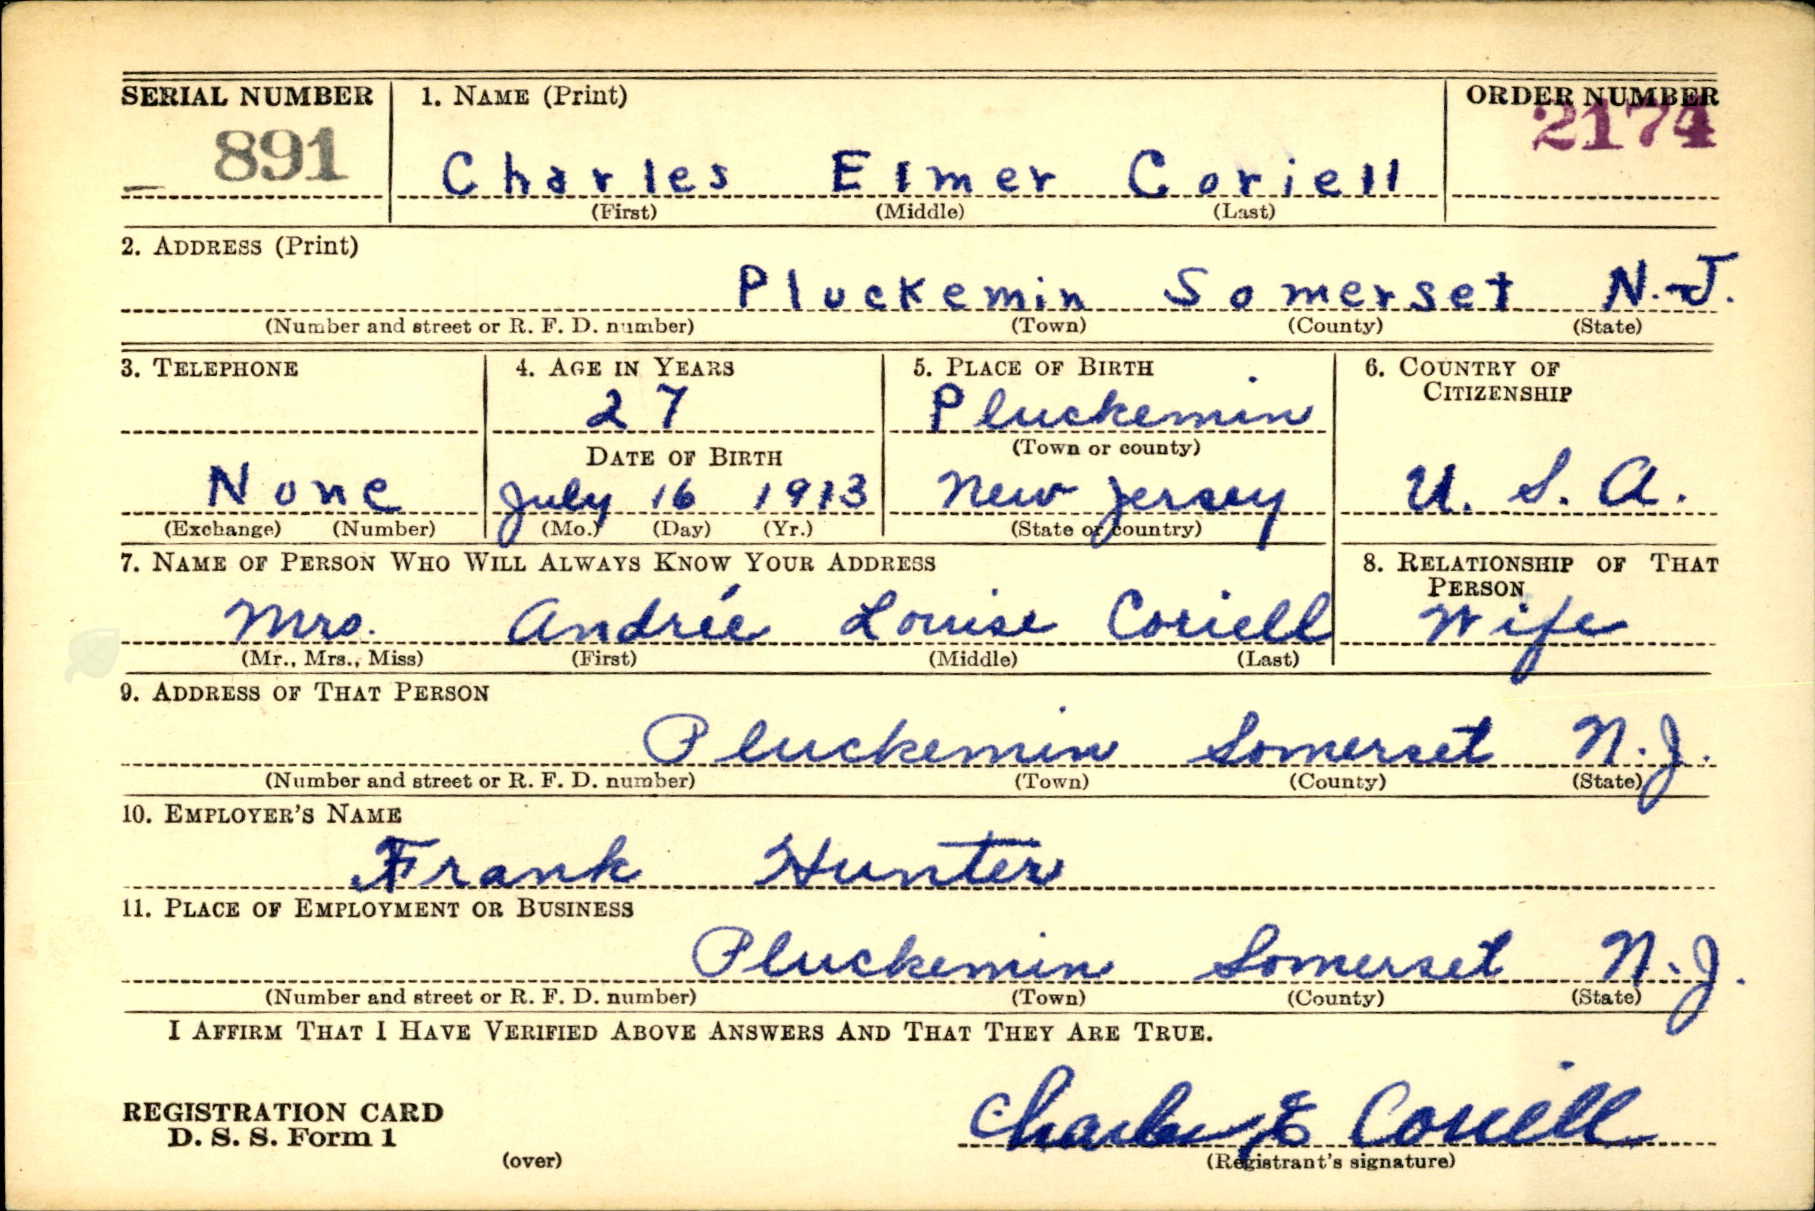 SERIAL NUMBER 1. NAME (Print) ORDER NUMBER
891 Charles Elmer Coriell 2174
(First) (Middle) (Last)
2. ADDRESS (Print)
Pluckemin Somerset N.J.
(Number and street or R. F. D. number) (Town) (County) (State)
3. TELEPHONE 4. AGE IN YEARS 5. PLACE OF BIRTH 6. COUNTRY OF
CITIZENSHIP
27 Pluckemin
DATE OF BIRTH (Town or county)
None July 16 1913 New Jersey U. S. A.
(Exchange) (Number) (Mo.) (Day) (Yr.) (State or country)
7. NAME OF PERSON WHO WILL ALWAYS KNOW YOUR ADDRESS 8. RELATIONSHIP OF THAT
PERSON
Mrs. Andrée Louise Coriell Wife
(Mr., Mrs., Miss) (First) (Middle) (Last)
9. ADDRESS OF THAT PERSON
Pluckemin Somerset N.J.
(Number and street or R. F. D. number) (Town) (County) (State)
10. EMPLOYER'S NAME
Frank Hunter
11. PLACE OF EMPLOYMENT OR BUSINESS
Pluckemin Somerset N.J.
(Number and street or R. F. D. number) (Town) (County) (State)
I AFFIRM THAT I HAVE VERIFIED ABOVE ANSWERS AND THAT THEY ARE TRUE.
REGISTRATION CARD
D. S. S. Form 1 Charles E Coriell
(over) (Registrant's signature)